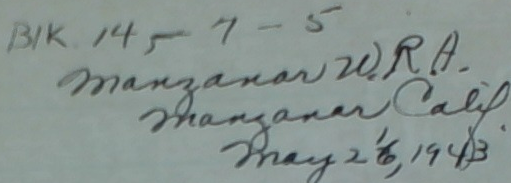 Blk. 14 - 7 - 5
Manzanar W.R.A.
Manzanar Calif.
May 26, 1943